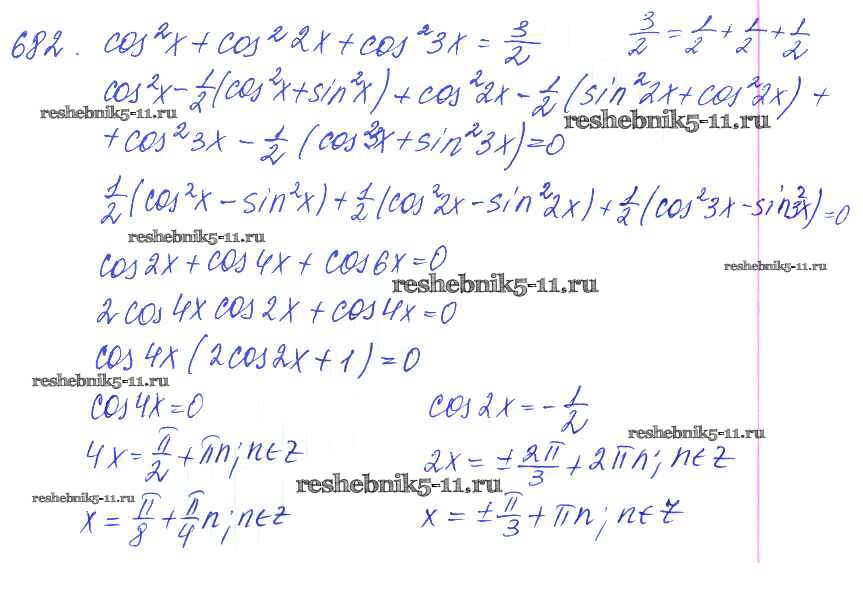 682. cos²x + cos²2x + cos²3x = 3/2    3/2 = 1/2 + 1/2 + 1/2
cos²x - 1/2(cos²x + sin²x) + cos²2x - 1/2(sin²2x + cos²2x) +
reshebnik5-11.ru reshebnik5-11.ru
+ cos²3x - 1/2(cos²3x + sin²3x) = 0
1/2(cos²x - sin²x) + 1/2(cos²2x - sin²2x) + 1/2(cos²3x - sin²3x) = 0
reshebnik5-11.ru
cos2x + cos4x + cos6x = 0
reshebnik5-11.ru reshebnik5-11.ru
2cos4x cos2x + cos4x = 0
cos4x(2cos2x + 1) = 0
reshebnik5-11.ru
cos4x = 0    cos2x = -1/2
reshebnik5-11.ru
4x = π/2 + πn; n∈Z    2x = ±2π/3 + 2πn; n∈Z
reshebnik5-11.ru reshebnik5-11.ru
x = π/8 + π/4 n; n∈Z    x = ±π/3 + πn; n∈Z